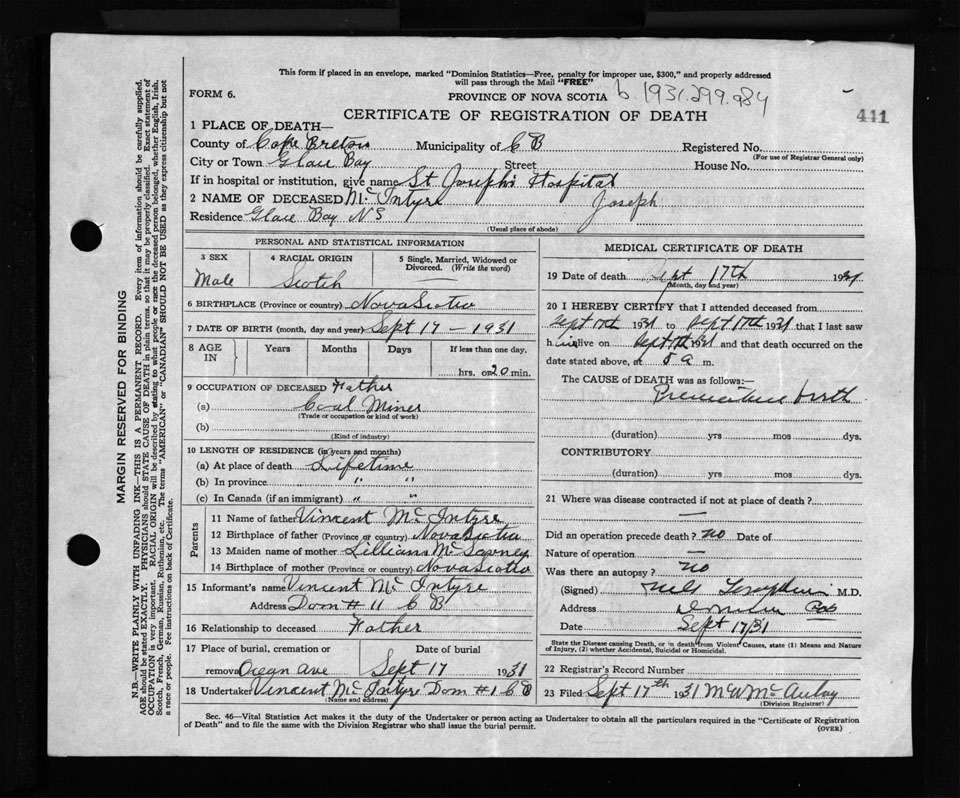 This form if placed in an envelope, marked "Dominion Statistics—Free, penalty for improper use, $300," and properly addressed
will pass through the Mail "FREE"
FORM 6.
PROVINCE OF NOVA SCOTIA b 1931.299.984
CERTIFICATE OF REGISTRATION OF DEATH
441
1 PLACE OF DEATH—
County of Cape Breton Municipality of C B Registered No.
(For use of Registrar General only)
City or Town Glace Bay Street House No.
If in hospital or institution, give name St Joseph's Hospital
2 NAME OF DECEASED McIntyre Joseph
Residence Glace Bay N S
(Usual place of abode)
PERSONAL AND STATISTICAL INFORMATION
3 SEX 4 RACIAL ORIGIN 5 Single, Married, Widowed or Divorced. (Write the word)
Male Scotch —
6 BIRTHPLACE (Province or country) Nova Scotia
7 DATE OF BIRTH (month, day and year) Sept 17 — 1931
8 AGE IN Years Months Days If less than one day,
hrs. or 20 min.
9 OCCUPATION OF DECEASED Father
(a) Coal Miner
(Trade or occupation or kind of work)
(b)
(Kind of industry)
10 LENGTH OF RESIDENCE (in years and months)
(a) At place of death Lifetime
(b) In province " "
(c) In Canada (if an immigrant) " "
Parents
11 Name of father Vincent McIntyre
12 Birthplace of father (Province or country) Nova Scotia
13 Maiden name of mother Lilliann
14 Birthplace of mother (Province or country) Nova Scotia
15 Informant's name Vincent McIntyre
Address Dom # 11 C B
16 Relationship to deceased Father
17 Place of burial, cremation or removal Date of burial
Ocean Ave Sept 17 1931
18 Undertaker Vincent McIntyre Dom # 1 C B
(Name and address)
MEDICAL CERTIFICATE OF DEATH
19 Date of death Sept 17th 1931
(Month, day and year)
20 I HEREBY CERTIFY that I attended deceased from
Sept 17th 1931 to Sept 17th 1931 that I last saw
h im alive on Sept 17th 1931 and that death occurred on the
date stated above, at 8 a m.
The CAUSE of DEATH was as follows:—
Premature birth
(duration) yrs mos dys.
CONTRIBUTORY
(duration) yrs mos dys.
21 Where was disease contracted if not at place of death?
—
Did an operation precede death? no Date of
Nature of operation —
Was there an autopsy? no
(Signed) M.D.
Address
Date Sept 17/31
State the Disease causing Death, or in death from Violent Causes, state (1) Means and Nature
of Injury, (2) whether Accidental, Suicidal or Homicidal.
22 Registrar's Record Number
23 Filed Sept 17th 1931 M W McAulay
(Division Registrar)
Sec. 46—Vital Statistics Act makes it the duty of the Undertaker or person acting as Undertaker to obtain all the particulars required in the "Certificate of Registration
of Death" and to file the same with the Division Registrar who shall issue the burial permit.
(OVER)
MARGIN RESERVED FOR BINDING
N.B.—WRITE PLAINLY WITH UNFADING INK—THIS IS A PERMANENT RECORD. Every item of information should be carefully supplied.
AGE should be stated EXACTLY. PHYSICIANS should STATE CAUSE OF DEATH in plain terms, so that it may be properly classified. Exact statement of
OCCUPATION is very important. RACIAL ORIGIN will be described by stating to what people or race the deceased person belonged, whether English, Irish,
Scotch, French, German, Russian, Ruthenian, etc. The terms "AMERICAN" or "CANADIAN" SHOULD NOT BE USED as they express citizenship but not
a race or people. See instructions on back of Certificate.